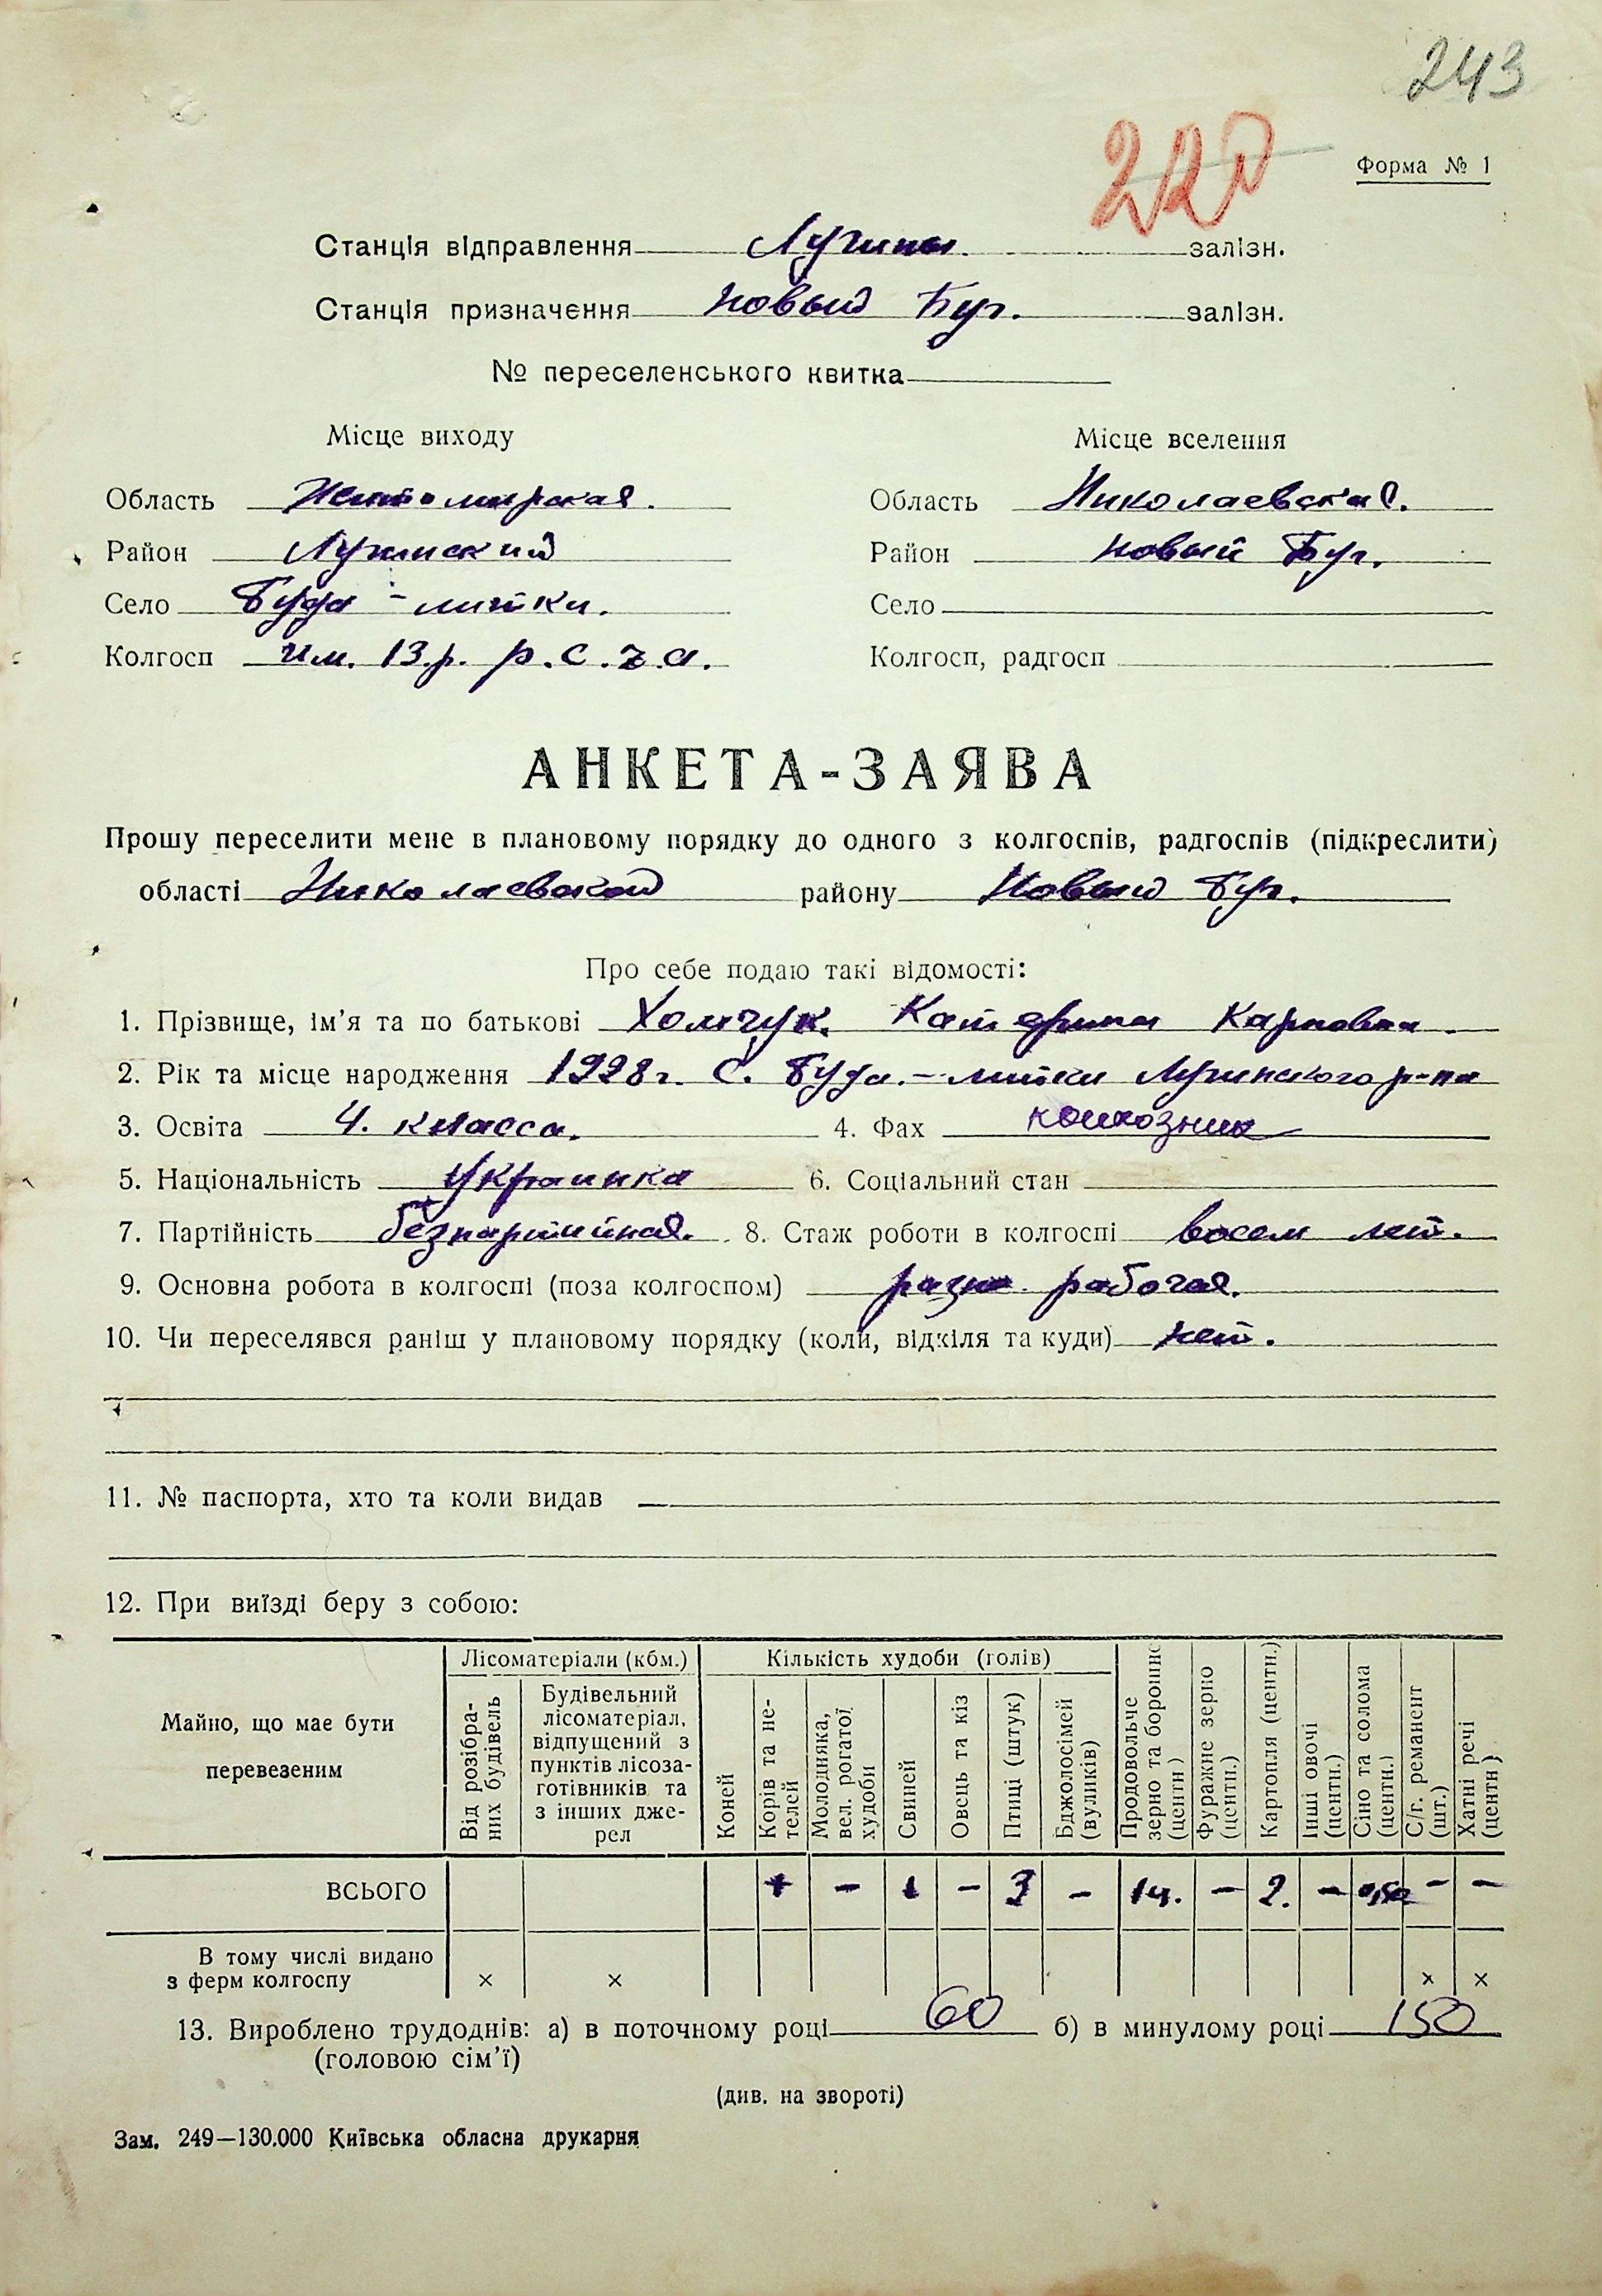 243
220
Форма № 1
Станція відправлення Лугины. залізн.
Станція призначення Новый Буг. залізн.
№ переселенського квитка
Місце виходу Місце вселення
Область Житомирская. Область Николаевская.
Район Лугинский Район Новый Буг.
Село Буда - литки. Село
Колгосп им. 13.р. р.с.з.а. Колгосп, радгосп
АНКЕТА-ЗАЯВА
Прошу переселити мене в плановому порядку до одного з колгоспів, радгоспів (підкреслити)
області Николаевской району Новый Буг.
Про себе подаю такі відомості:
1. Прізвище, ім'я та по батькові Хомчук. Катерина Карповна.
2. Рік та місце народження 1928 г. С. Буда.-литки Лугинского р-на
3. Освіта 4. класса. 4. Фах колхозник
5. Національність Украинка 6. Соціальний стан
7. Партійність безпартийная. 8. Стаж роботи в колгоспі восем лет.
9. Основна робота в колгоспі (поза колгоспом) разно рабочая.
10. Чи переселявся раніш у плановому порядку (коли, відкіля та куди) нет.
11. № паспорта, хто та коли видав —
12. При виїзді беру з собою:
Майно, що має бути перевезеним
Лісоматеріали (кбм.)
Від розібраних будівель
Будівельний лісоматеріал, відпущений з пунктів лісозаготівників та з інших джерел
Кількість худоби (голів)
Коней
Корів та нетелей
Молодняка, вел. рогатої худоби
Свиней
Овець та кіз
Птиці (штук)
Бджолосімей (вуликів)
Продовольче зерно та борошно (центн)
Фуражне зерно (центн.)
Картопля (центн.)
Інші овочі (центн.)
Сіно та солома (центн.)
С/г. реманент (шт.)
Хатні речі (центн)
ВСЬОГО + - 1 - 3 - 1ц. - 2. - 0,50 - -
В тому числі видано
з ферм колгоспу × × × ×
13. Вироблено трудоднів: а) в поточному році 60 б) в минулому році 150
(головою сім'ї)
(див. на звороті)
Зам. 249—130.000 Київська обласна друкарня